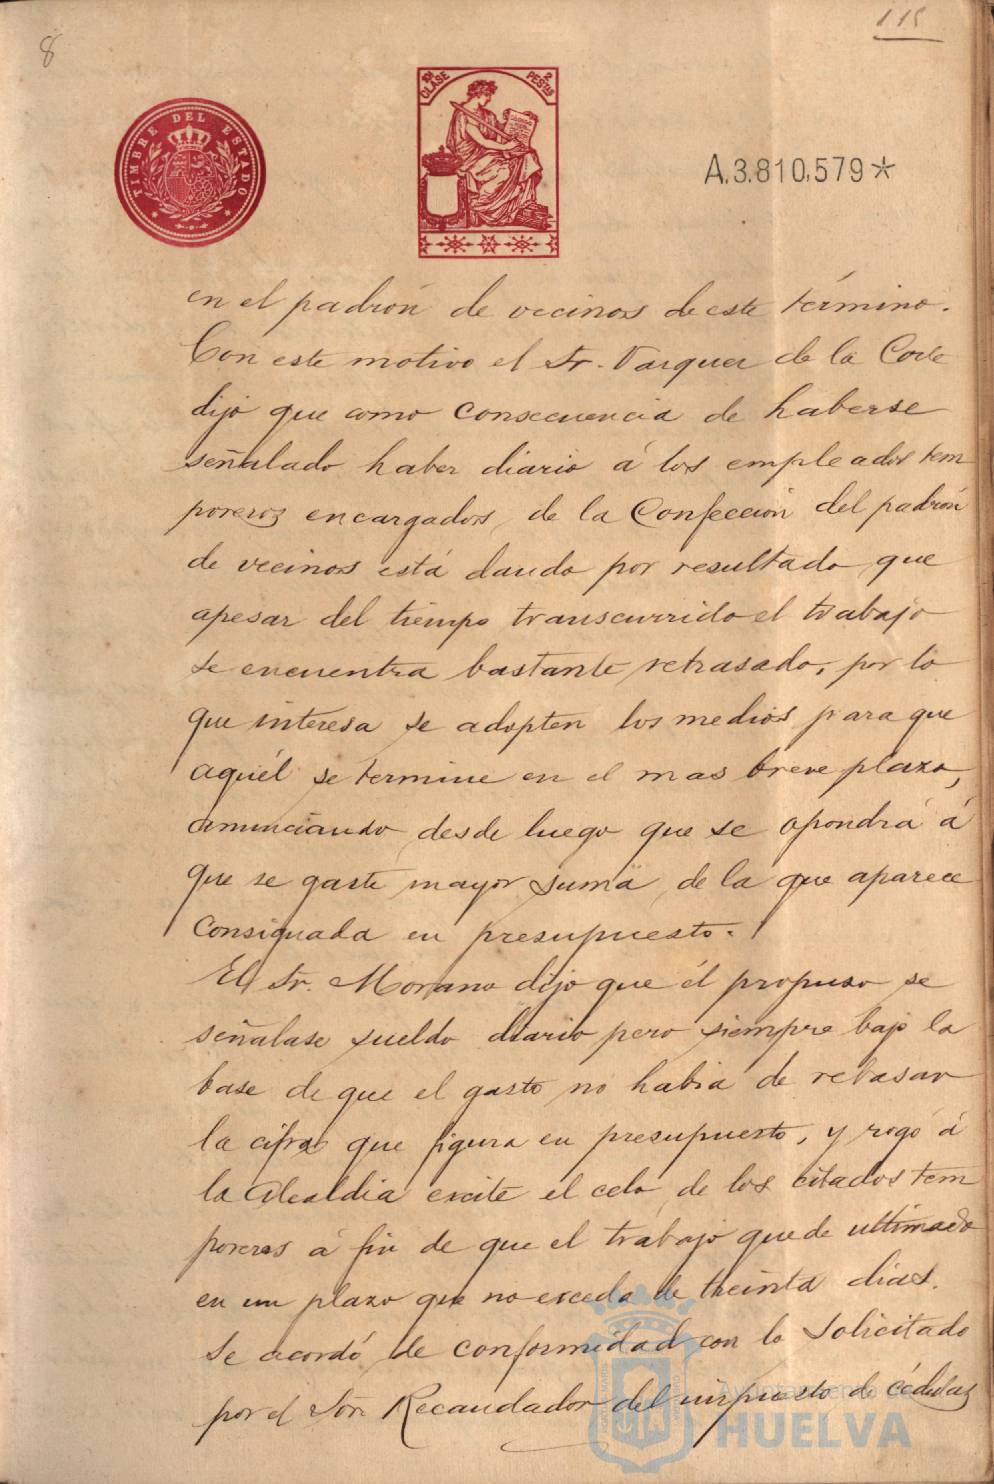 8
115
TIMBRE DEL ESTADO
CLASE
2 PESTAS
A.3.810,579*
en el padrón de vecinos de este término.
Con este motivo el Sr. Vazquez de la Corte
dijo que como consecuencia de haberse
señalado haber diario á los empleados tem
poreros encargados de la Confección del padrón
de vecinos está dando por resultado que
apesar del tiempo transcurrido el trabajo
se encuentra bastante retrasado, por lo
que interesa se adopten los medios para que
aquél se termine en el mas breve plazo,
anunciando desde luego que se opondrá á
que se gaste mayor suma de la que aparece
consignada en presupuesto.
El Sr. Morano dijo que él propuso se
señalase sueldo diario pero siempre bajo la
base de que el gasto no habia de rebasar
la cifra que figura en presupuesto, y rogó á
la Alcaldia excite el celo de los citados tem
poreros á fin de que el trabajo quede ultimado
en un plazo que no exceda de treinta dias.
Se acordó de conformidad con lo solicitado
por el Sor. Recaudador del impuesto de cédulas
Ayuntamiento de
HUELVA